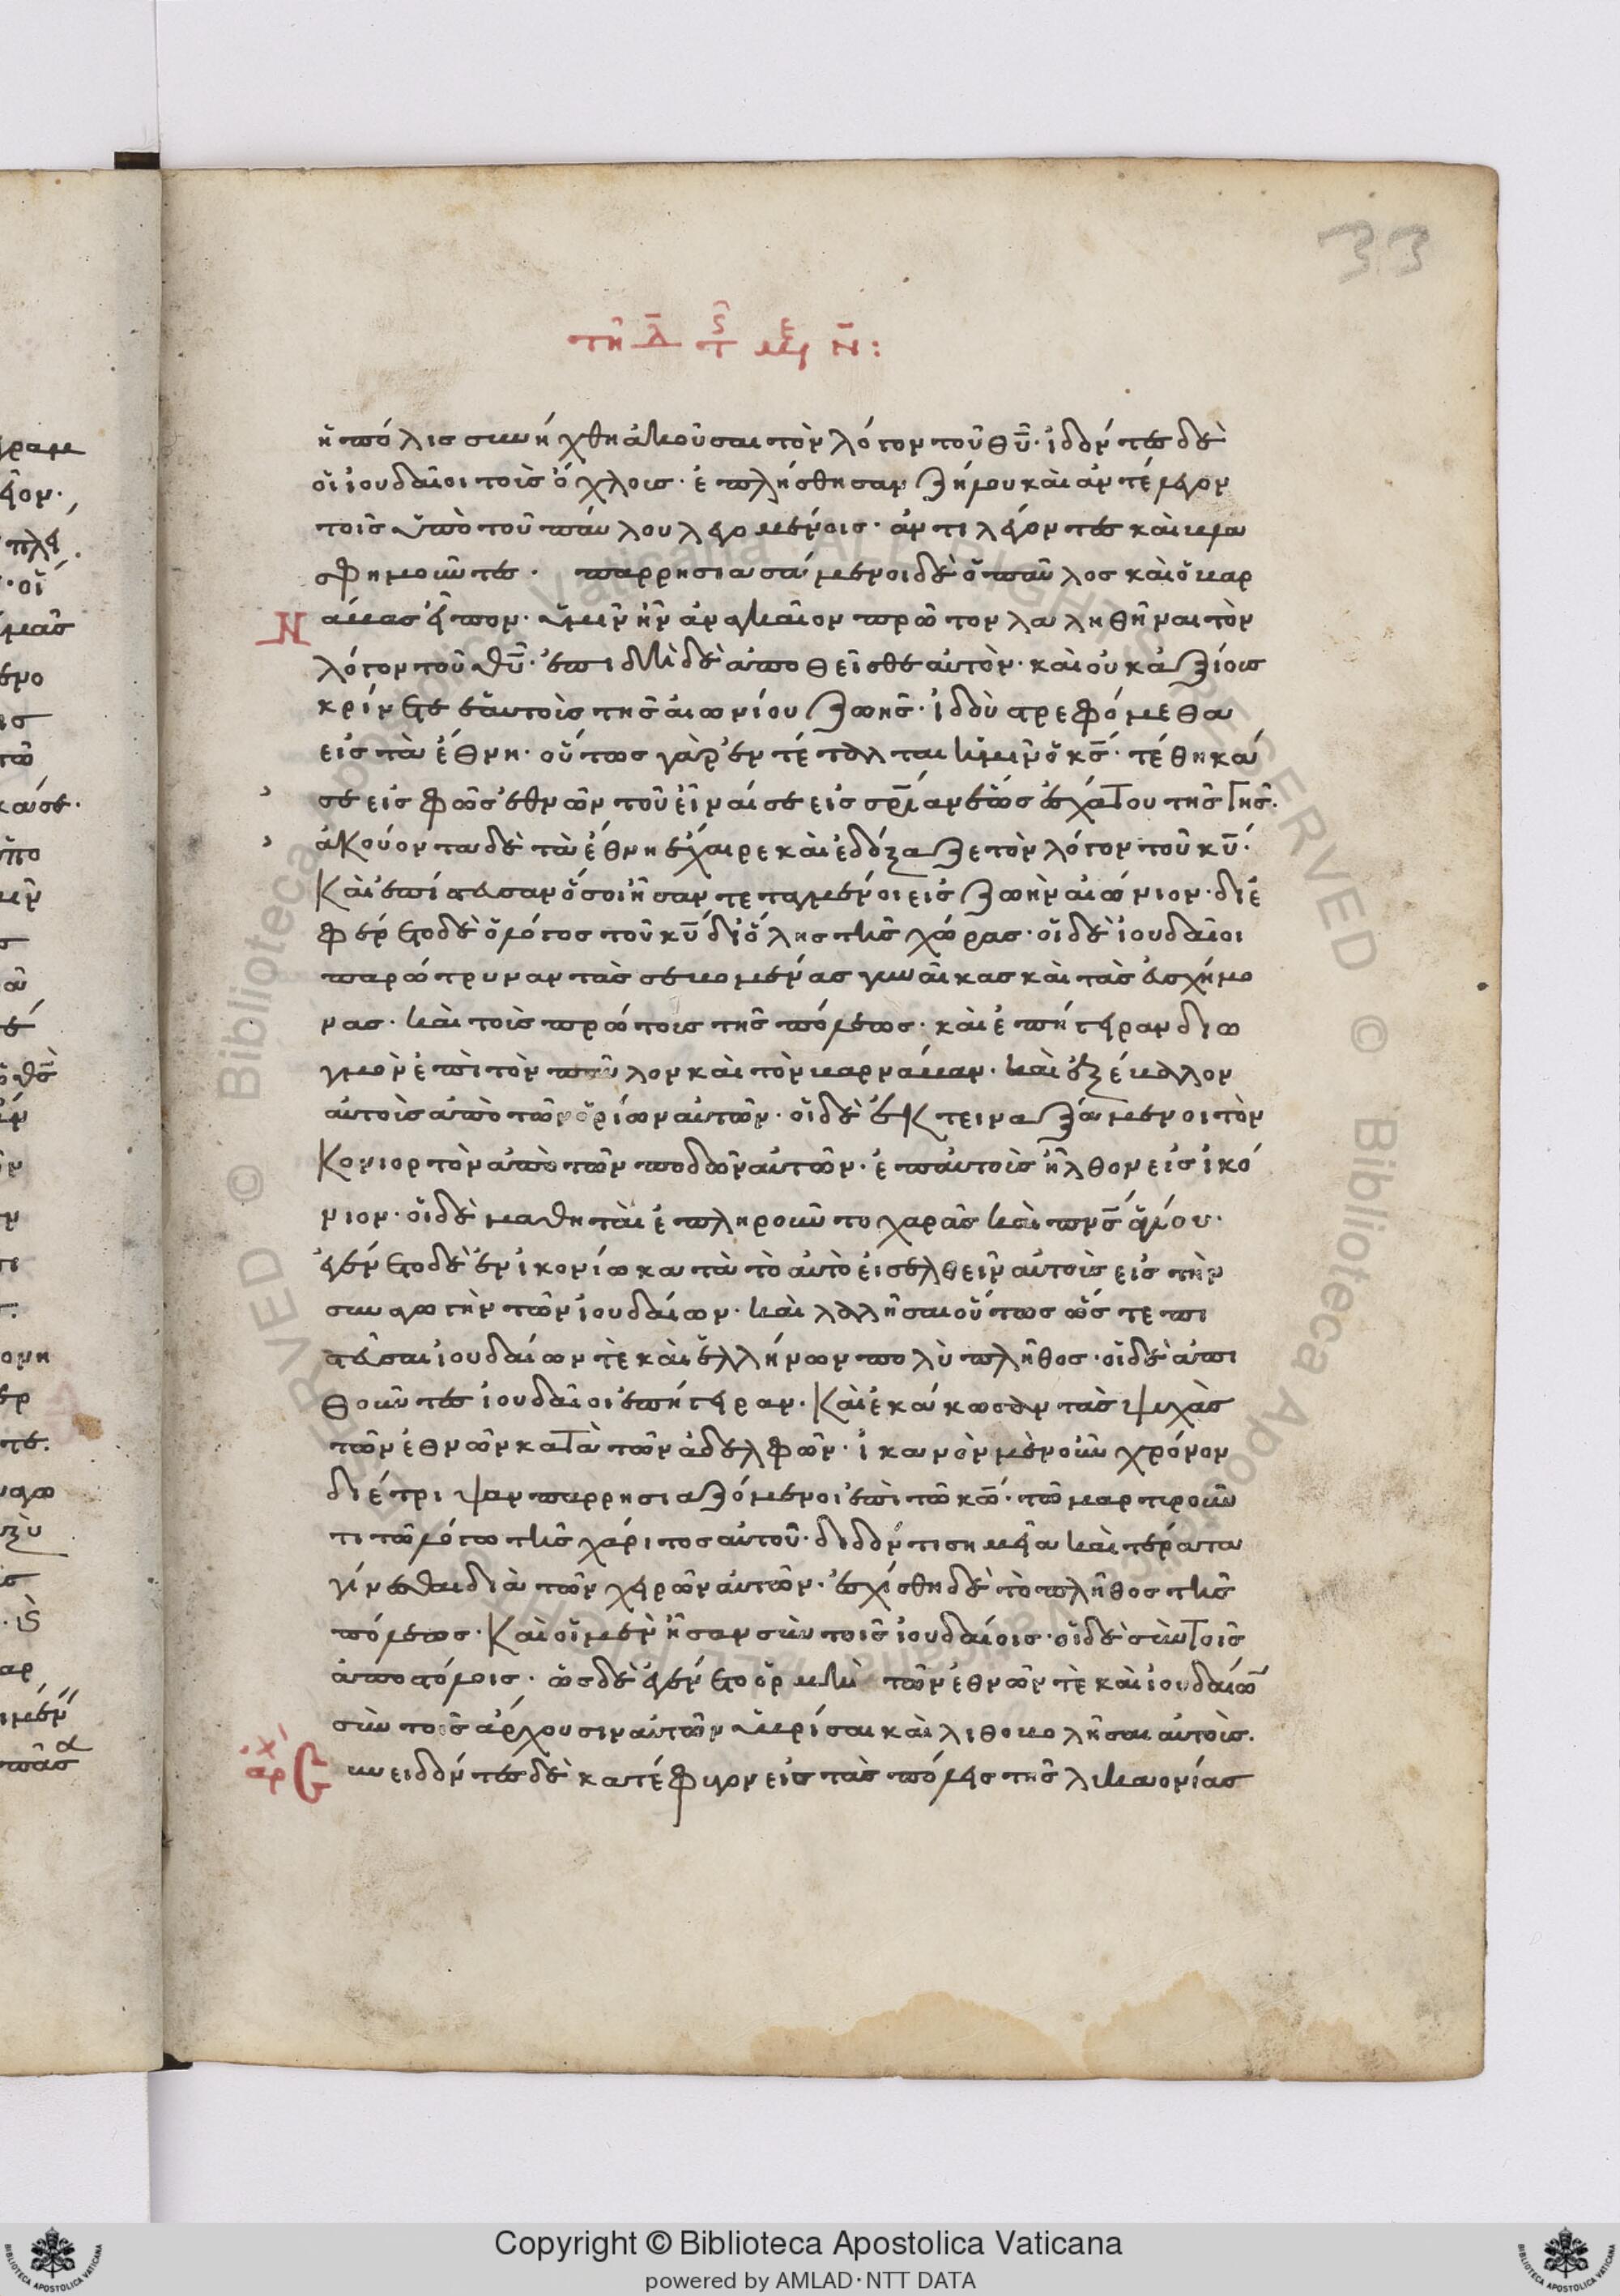 33
τῆ Δ τῆς ε ἑβδ Ν:
ἡ πόλις συνήχθη ἀκοῦσαι τὸν λόγον τοῦ θῦ· ἰδόντες δὲ
οἱ ἰουδαῖοι τοὺς ὄχλους· ἐπλήσθησαν ζήλου καὶ ἀντέλεγον
τοῖς ὑπὸ τοῦ παύλου λεγομένοις· ἀντιλέγοντες καὶ βλα
σφημοῦντες· παρρησιασάμενοι δὲ ὁ παῦλος καὶ ὁ βαρ
νάβας εἶπον· ὑμῖν ἦν ἀναγκαῖον πρῶτον λαληθῆναι τὸν
λόγον τοῦ θῦ· ἐπιδὴ δὲ ἀποθεῖσθε αὐτὸν· καὶ οὐκ ἀξίους
κρίνετε ἑαυτοὺς τῆς αἰωνίου ζωῆς· ἰδοὺ στρεφόμεθα
εἰς τὰ ἔθνη· οὕτως γὰρ ἐντέταλται ἡμῖν ὁ κς· τέθηκά
σε εἰς φῶς ἐθνῶν τοῦ εἶναί σε εἰς σρίαν ἕως ἐσχάτου τῆς γῆς·
ἀκούοντα δὲ τὰ ἔθνη ἔχαιρε καὶ ἐδόξαζε τὸν λόγον τοῦ κυ·
καὶ ἐπίστευσαν ὅσοι ἦσαν τεταγμένοι εἰς ζωὴν αἰώνιον· διε
φέρετο δὲ ὁ λόγος τοῦ κυ δι' ὅλης τῆς χώρας· οἱ δὲ ἰουδαῖοι
παρώτρυναν τὰς σεβομένας γυναῖκας καὶ τὰς εὐσχήμο
νας· καὶ τοὺς πρώτους τῆς πόλεως· καὶ ἐπήγειραν διω
γμὸν ἐπὶ τὸν παῦλον καὶ τὸν βαρνάβαν· καὶ ἐξέβαλλον
αὐτοὺς ἀπὸ τῶν ὁρίων αὐτῶν· οἱ δὲ ἐκτειναξάμενοι τὸν
κονιορτὸν ἀπὸ τῶν ποδῶν αὐτῶν· ἐπ' αὐτοὺς ἦλθον εἰς ἰκό
νιον· οἱ δὲ μαθηταὶ ἐπληροῦντο χαρᾶς καὶ πνς ἁγίου·
ἐγένετο δὲ ἐν ἰκονίω κατὰ τὸ αὐτὸ εἰσελθεῖν αὐτοὺς εἰς τὴν
συναγωγὴν τῶν ἰουδαίων· καὶ λαλῆσαι οὕτως ὥστε πι
στεῦσαι ἰουδαίων τε καὶ ἑλλήνων πολὺ πλῆθος· οἱ δὲ ἀπι
θοῦντες ἰουδαῖοι ἐπήγειραν· καὶ ἐκάκωσαν τὰς ψυχὰς
τῶν ἐθνῶν κατὰ τῶν ἀδελφῶν· ἱκανὸν μὲν οὖν χρόνον
διέτριψαν παρρησιαζόμενοι ἐπὶ τῶ κω· τῶ μαρτυροῦν
τι τῶ λόγω τῆς χάριτος αὐτοῦ· διδόντι σημεῖα καὶ τέρατα
γίνεσθαι διὰ τῶν χειρῶν αὐτῶν· ἐσχίσθη δὲ τὸ πλῆθος τῆς
πόλεως· καὶ οἱ μὲν ἦσαν σὺν τοῖς ἰουδαίοις· οἱ δὲ σὺν τοῖς
ἀποστόλοις· ὡς δὲ ἐγένετο ὁρμὴ τῶν ἐθνῶν τε καὶ ἰουδαίω
σὺν τοῖς ἄρχουσιν αὐτῶν ὑβρίσαι καὶ λιθοβολῆσαι αὐτοὺς·
αρχ Συνειδόντες δὲ κατέφυγον εἰς τὰς πόλεις τῆς λυκαονίας
Copyright © Biblioteca Apostolica Vaticana
powered by AMLAD·NTT DATA